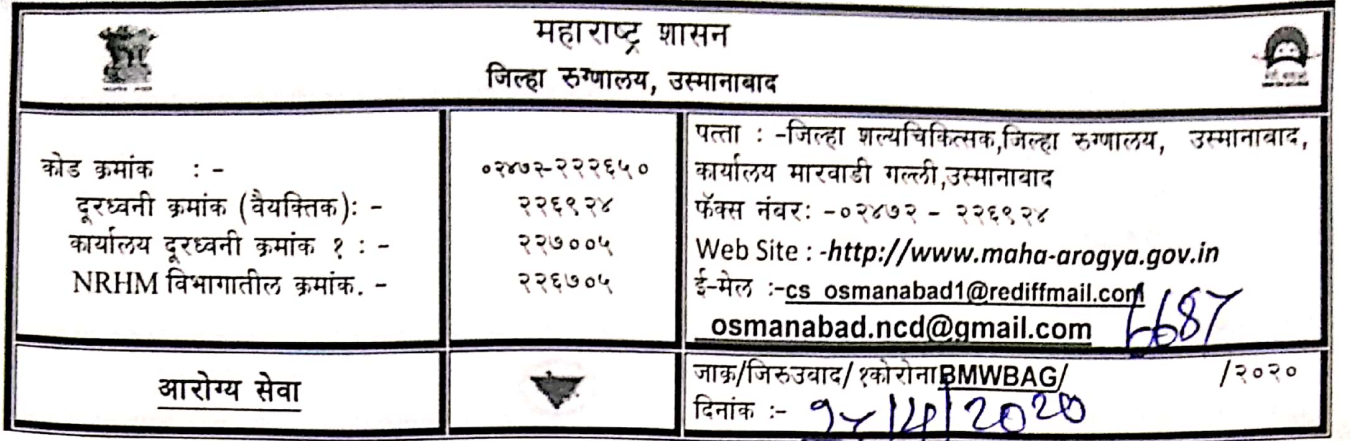 महाराष्ट्र शासन
जिल्हा रुग्णालय, उस्मानाबाद
कोड क्रमांक : -
०२४७२-२२२६५०
दूरध्वनी क्रमांक (वैयक्तिक): -
२२६९२४
कार्यालय दूरध्वनी क्रमांक १ : -
२२७००५
NRHM विभागातील क्रमांक. -
२२६७०५
पत्ता : -जिल्हा शल्यचिकित्सक,जिल्हा रुग्णालय, उस्मानाबाद,
कार्यालय मारवाडी गल्ली,उस्मानाबाद
फॅक्स नंबर: -०२४७२ - २२६९२४
Web Site : -http://www.maha-arogya.gov.in
ई-मेल :-cs_osmanabad1@rediffmail.com
osmanabad.ncd@gmail.com 6687
आरोग्य सेवा
जाक्र/जिरुउवाद/१कोरोनाBMWBAG/ /२०२०
दिनांक :- /4/2020